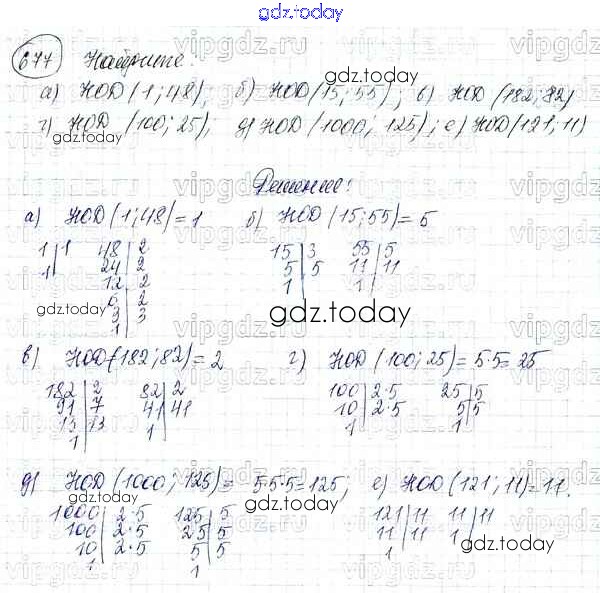 gdz.today
677 Найдите:
а) НОД (1; 48); б) НОД (15; 55); в) НОД (182; 82)
г) НОД (100; 25); д) НОД (1000; 125); е) НОД (121; 11)
Решение:
а) НОД (1; 48) = 1 б) НОД (15; 55) = 5
1 | 1 48 | 2 15 | 3 55 | 5
1 24 | 2 5 | 5 11 | 11
12 | 2 1 1
6 | 2
3 | 3
1
в) НОД (182; 82) = 2 г) НОД (100; 25) = 5·5 = 25
182 | 2 82 | 2 100 | 2·5 25 | 5
91 | 7 41 | 41 10 | 2·5 5 | 5
13 | 13 1 1 1
1
д) НОД (1000; 125) = 5·5·5 = 125; е) НОД (121; 11) = 11.
1000 | 2·5 125 | 5 121 | 11 11 | 11
100 | 2·5 25 | 5 11 | 11 1
10 | 2·5 5 | 5 1
1 1